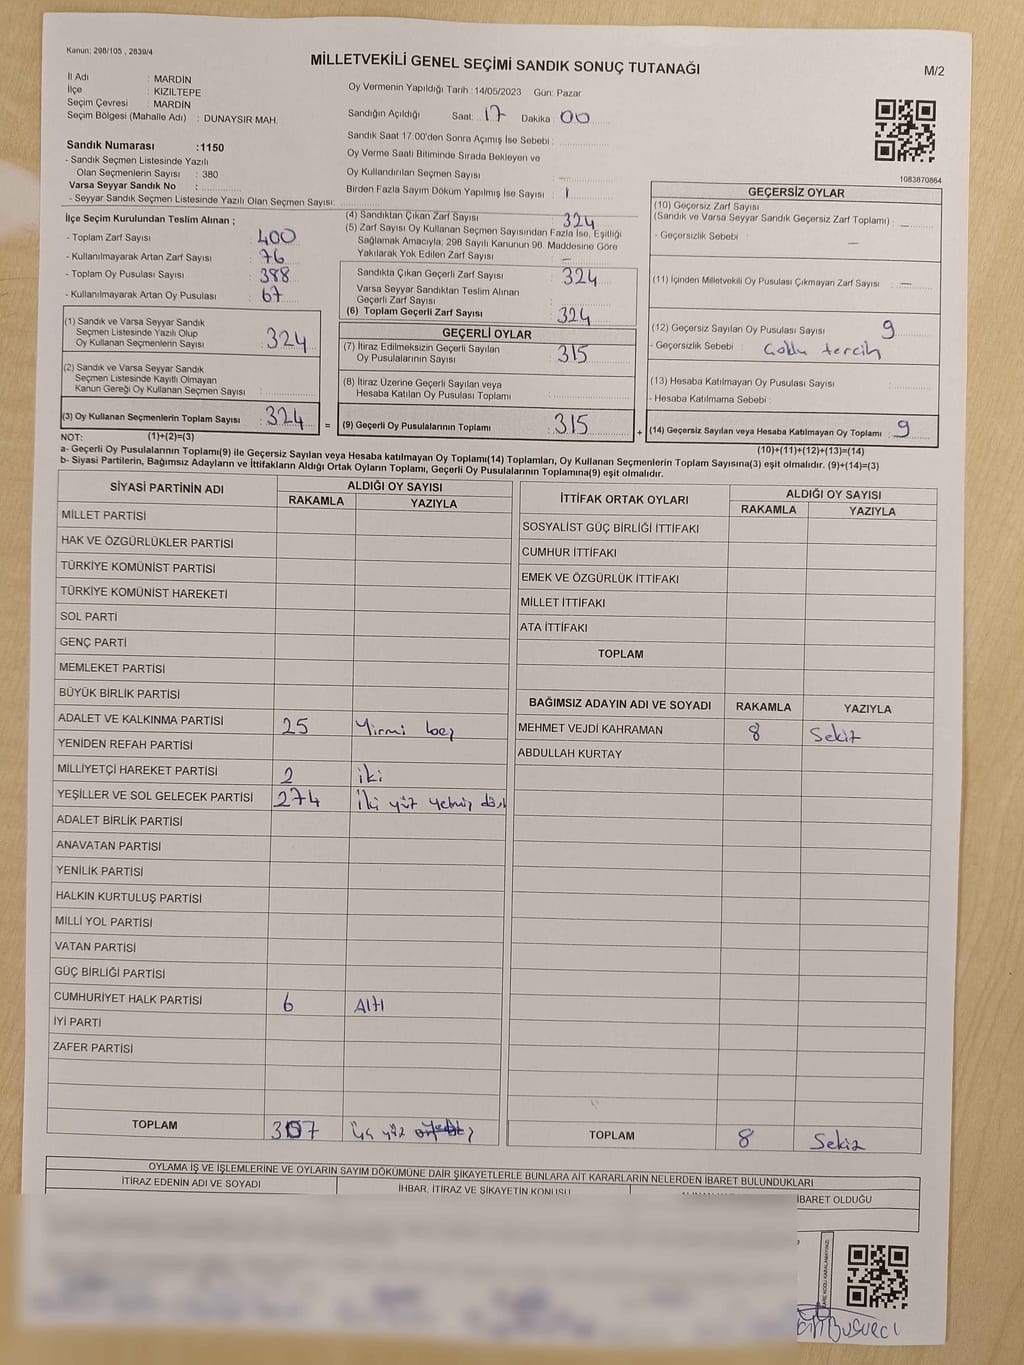 Kanun: 298/105 , 2839/4
MİLLETVEKİLİ GENEL SEÇİMİ SANDIK SONUÇ TUTANAĞI
M/2
İl Adı : MARDİN
İlçe : KIZILTEPE
Seçim Çevresi : MARDİN
Seçim Bölgesi (Mahalle Adı) : DUNAYSIR MAH.
Sandık Numarası :1150
- Sandık Seçmen Listesinde Yazılı
Olan Seçmenlerin Sayısı : 380
Varsa Seyyar Sandık No :
- Seyyar Sandık Seçmen Listesinde Yazılı Olan Seçmen Sayısı:
Oy Vermenin Yapıldığı Tarih :14/05/2023 Gün: Pazar
Sandığın Açıldığı Saat: 17 Dakika 00
Sandık Saat 17:00'den Sonra Açımış İse Sebebi :
Oy Verme Saati Bitiminde Sırada Bekleyen ve
Oy Kullandırılan Seçmen Sayısı
Birden Fazla Sayım Döküm Yapılmış İse Sayısı : 1
1083870864
İlçe Seçim Kurulundan Teslim Alınan ;
- Toplam Zarf Sayısı : 400
- Kullanılmayarak Artan Zarf Sayısı : 76
- Toplam Oy Pusulası Sayısı : 388
- Kullanılmayarak Artan Oy Pusulası : 67
(1) Sandık ve Varsa Seyyar Sandık
Seçmen Listesinde Yazılı Olup
Oy Kullanan Seçmenlerin Sayısı : 324
(2) Sandık ve Varsa Seyyar Sandık
Seçmen Listesinde Kayıtlı Olmayan
Kanun Gereği Oy Kullanan Seçmen Sayısı :
(3) Oy Kullanan Seçmenlerin Toplam Sayısı : 324
(4) Sandıktan Çıkan Zarf Sayısı : 324
(5) Zarf Sayısı Oy Kullanan Seçmen Sayısından Fazla İse, Eşitliği
Sağlamak Amacıyla; 298 Sayılı Kanunun 98. Maddesine Göre
Yakılarak Yok Edilen Zarf Sayısı : –
Sandıkta Çıkan Geçerli Zarf Sayısı : 324
Varsa Seyyar Sandıktan Teslim Alınan
Geçerli Zarf Sayısı :
(6) Toplam Geçerli Zarf Sayısı : 324
GEÇERLİ OYLAR
(7) İtiraz Edilmeksizin Geçerli Sayılan
Oy Pusulalarının Sayısı : 315
(8) İtiraz Üzerine Geçerli Sayılan veya
Hesaba Katılan Oy Pusulası Toplamı :
= (9) Geçerli Oy Pusulalarının Toplamı : 315
GEÇERSİZ OYLAR
(10) Geçersiz Zarf Sayısı
(Sandık ve Varsa Seyyar Sandık Geçersiz Zarf Toplamı) : –
- Geçersizlik Sebebi : –
(11) İçinden Milletvekili Oy Pusulası Çıkmayan Zarf Sayısı : –
(12) Geçersiz Sayılan Oy Pusulası Sayısı : 9
- Geçersizlik Sebebi : Çoklu tercih
(13) Hesaba Katılmayan Oy Pusulası Sayısı :
- Hesaba Katılmama Sebebi :
+ (14) Geçersiz Sayılan veya Hesaba Katılmayan Oy Toplamı : 9
NOT: (1)+(2)=(3)
(10)+(11)+(12)+(13)=(14)
a- Geçerli Oy Pusulalarının Toplamı(9) ile Geçersiz Sayılan veya Hesaba katılmayan Oy Toplamı(14) Toplamları, Oy Kullanan Seçmenlerin Toplam Sayısına(3) eşit olmalıdır. (9)+(14)=(3)
b- Siyasi Partilerin, Bağımsız Adayların ve İttifakların Aldığı Ortak Oyların Toplamı, Geçerli Oy Pusulalarının Toplamına(9) eşit olmalıdır.
SİYASİ PARTİNİN ADI ALDIĞI OY SAYISI
RAKAMLA YAZIYLA
MİLLET PARTİSİ
HAK VE ÖZGÜRLÜKLER PARTİSİ
TÜRKİYE KOMÜNİST PARTİSİ
TÜRKİYE KOMÜNİST HAREKETİ
SOL PARTİ
GENÇ PARTİ
MEMLEKET PARTİSİ
BÜYÜK BİRLİK PARTİSİ
ADALET VE KALKINMA PARTİSİ 25 Yirmi beş
YENİDEN REFAH PARTİSİ
MİLLİYETÇİ HAREKET PARTİSİ 2 iki
YEŞİLLER VE SOL GELECEK PARTİSİ 274 İki yüz yetmiş dört
ADALET BİRLİK PARTİSİ
ANAVATAN PARTİSİ
YENİLİK PARTİSİ
HALKIN KURTULUŞ PARTİSİ
MİLLİ YOL PARTİSİ
VATAN PARTİSİ
GÜÇ BİRLİĞİ PARTİSİ
CUMHURİYET HALK PARTİSİ 6 Altı
İYİ PARTİ
ZAFER PARTİSİ
TOPLAM 307 üç yüz
İTTİFAK ORTAK OYLARI ALDIĞI OY SAYISI
RAKAMLA YAZIYLA
SOSYALİST GÜÇ BİRLİĞİ İTTİFAKI
CUMHUR İTTİFAKI
EMEK VE ÖZGÜRLÜK İTTİFAKI
MİLLET İTTİFAKI
ATA İTTİFAKI
TOPLAM
BAĞIMSIZ ADAYIN ADI VE SOYADI RAKAMLA YAZIYLA
MEHMET VEJDİ KAHRAMAN 8 Sekiz
ABDULLAH KURTAY
TOPLAM 8 Sekiz
OYLAMA İŞ VE İŞLEMLERİNE VE OYLARIN SAYIM DÖKÜMÜNE DAİR ŞİKAYETLERLE BUNLARA AİT KARARLARIN NELERDEN İBARET BULUNDUKLARI
İTİRAZ EDENİN ADI VE SOYADI
İHBAR, İTİRAZ VE ŞİKAYETİN KONUSU
İBARET OLDUĞU